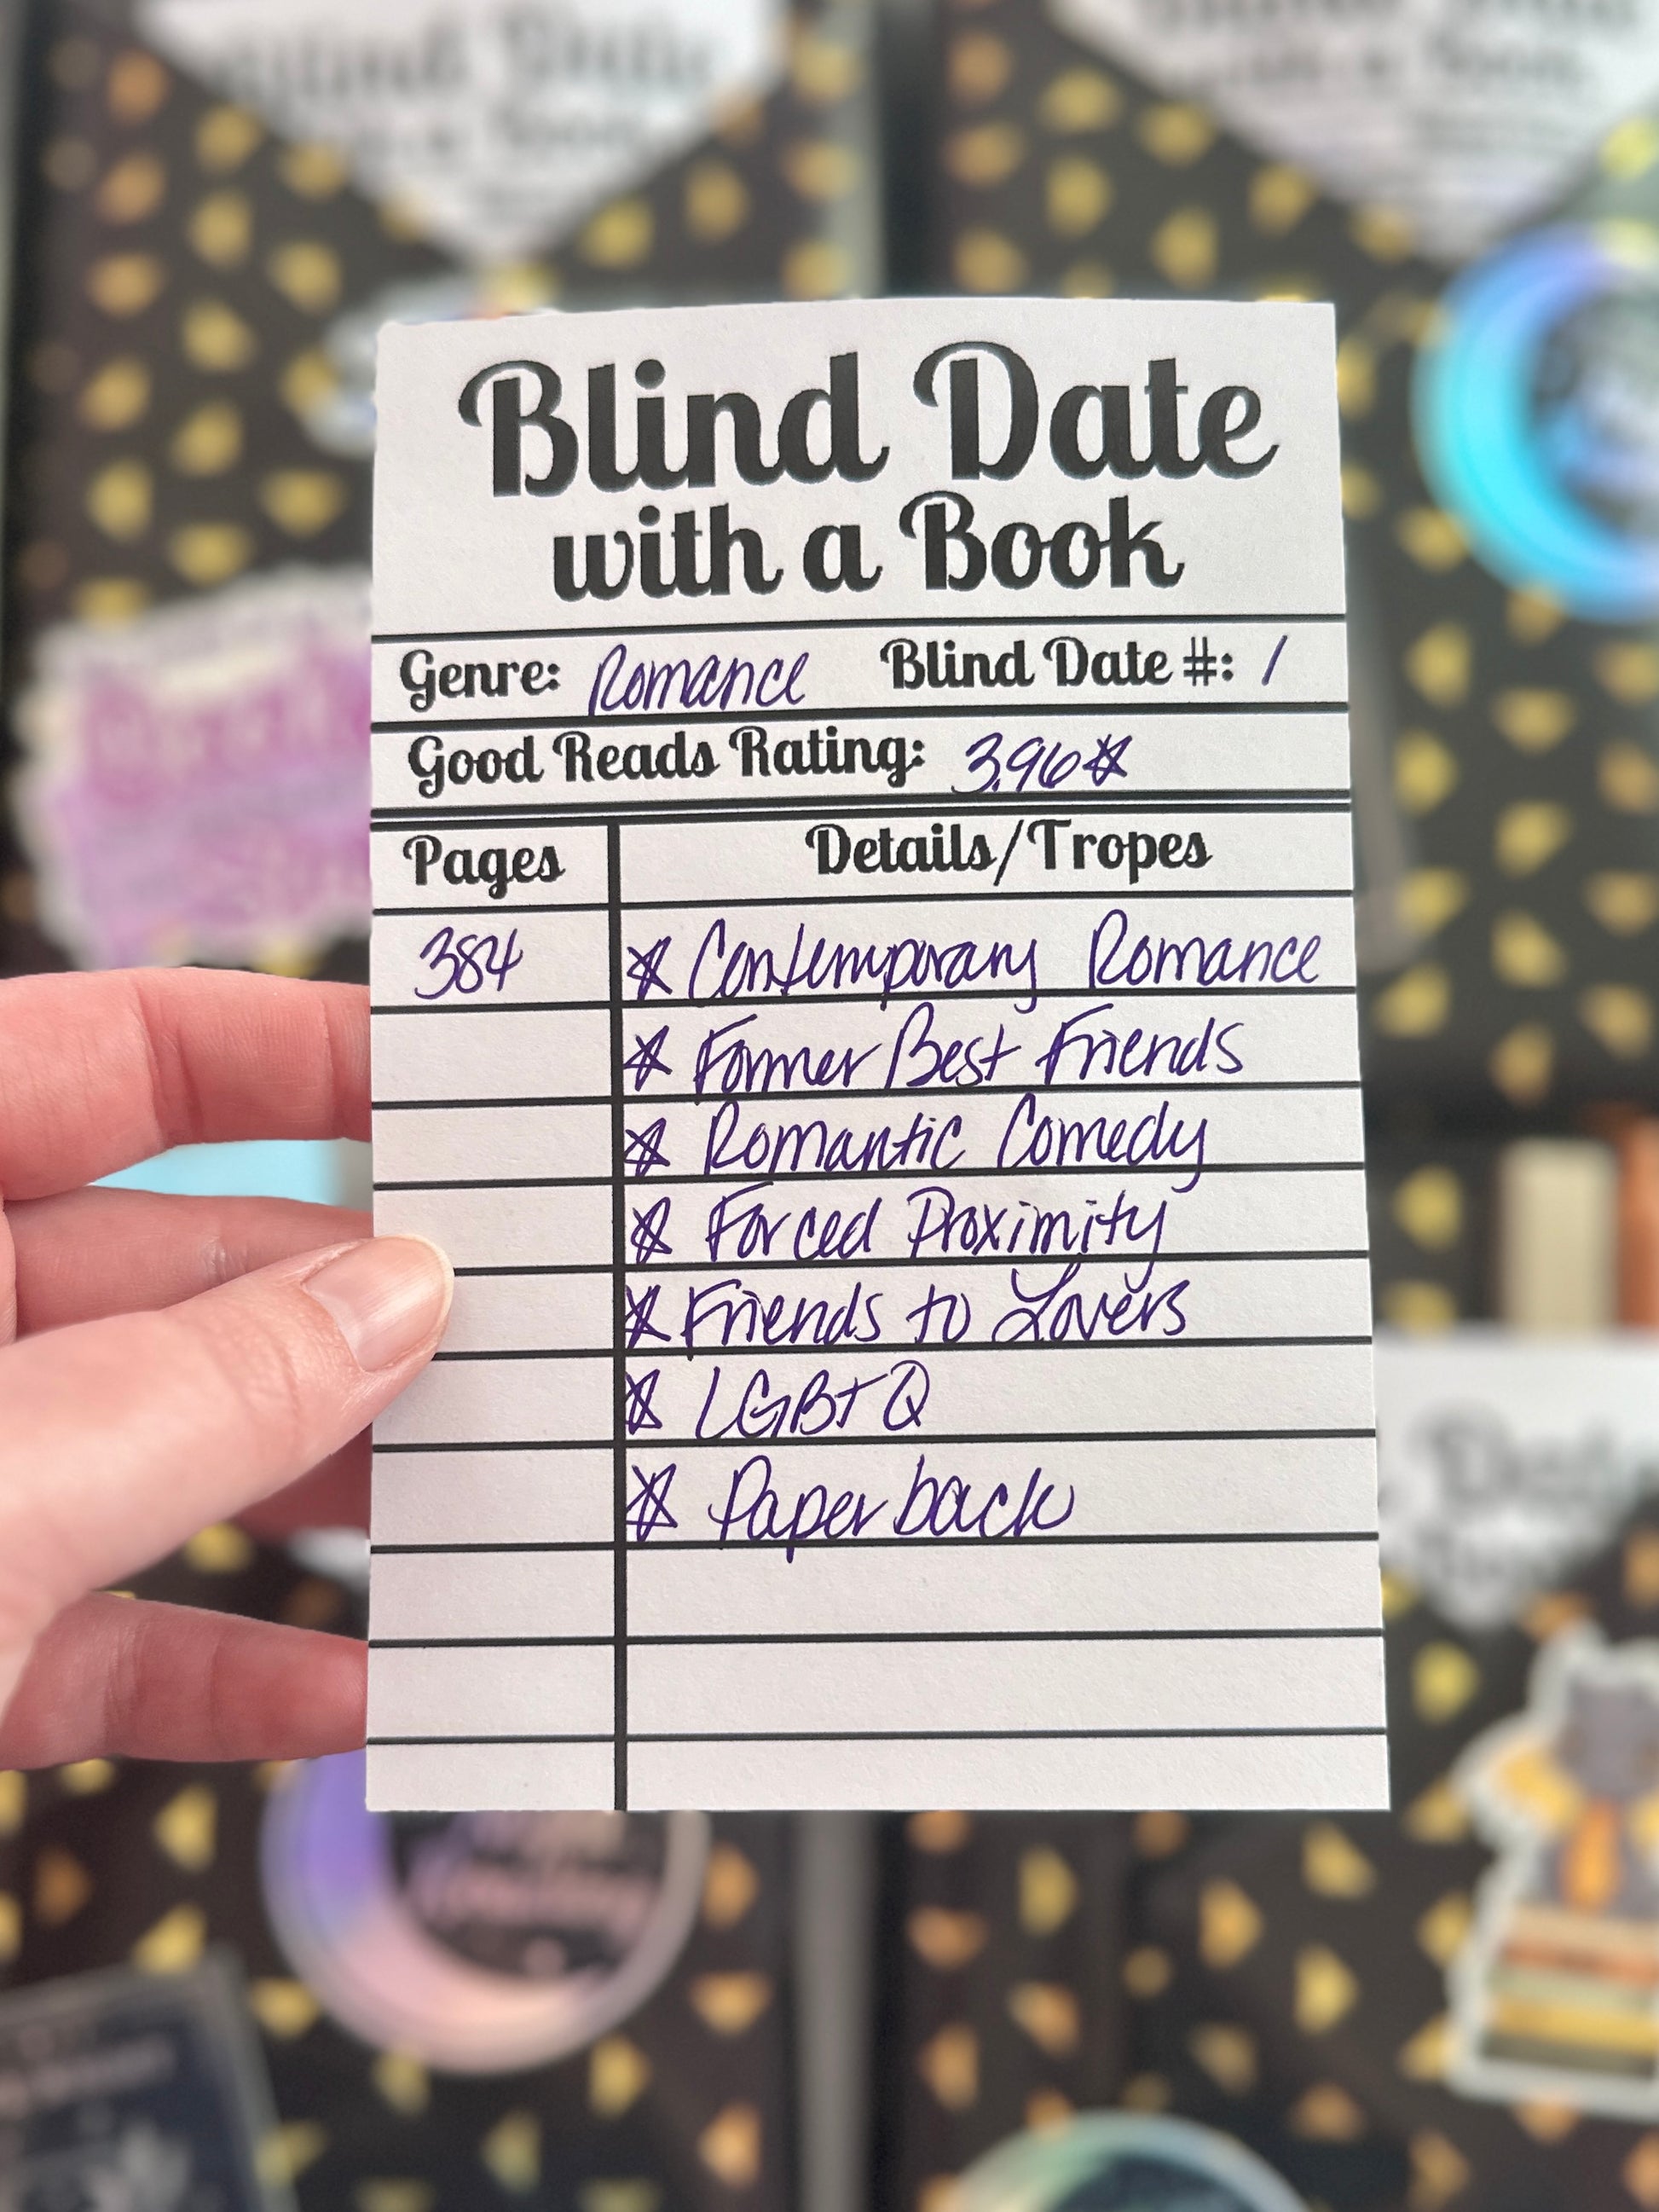 Blind Date
with a Book
Genre: Romance Blind Date #: 1
Good Reads Rating: 3.96☆
Pages Details/Tropes
384 ☆ Contemporary Romance
☆ Former Best Friends
☆ Romantic Comedy
☆ Forced Proximity
☆ Friends to Lovers
☆ LGBTQ
☆ Paperback